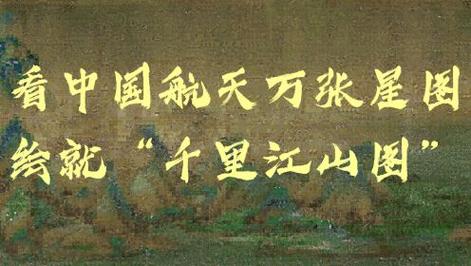 看中国航天万张星图
绘就“千里江山图”